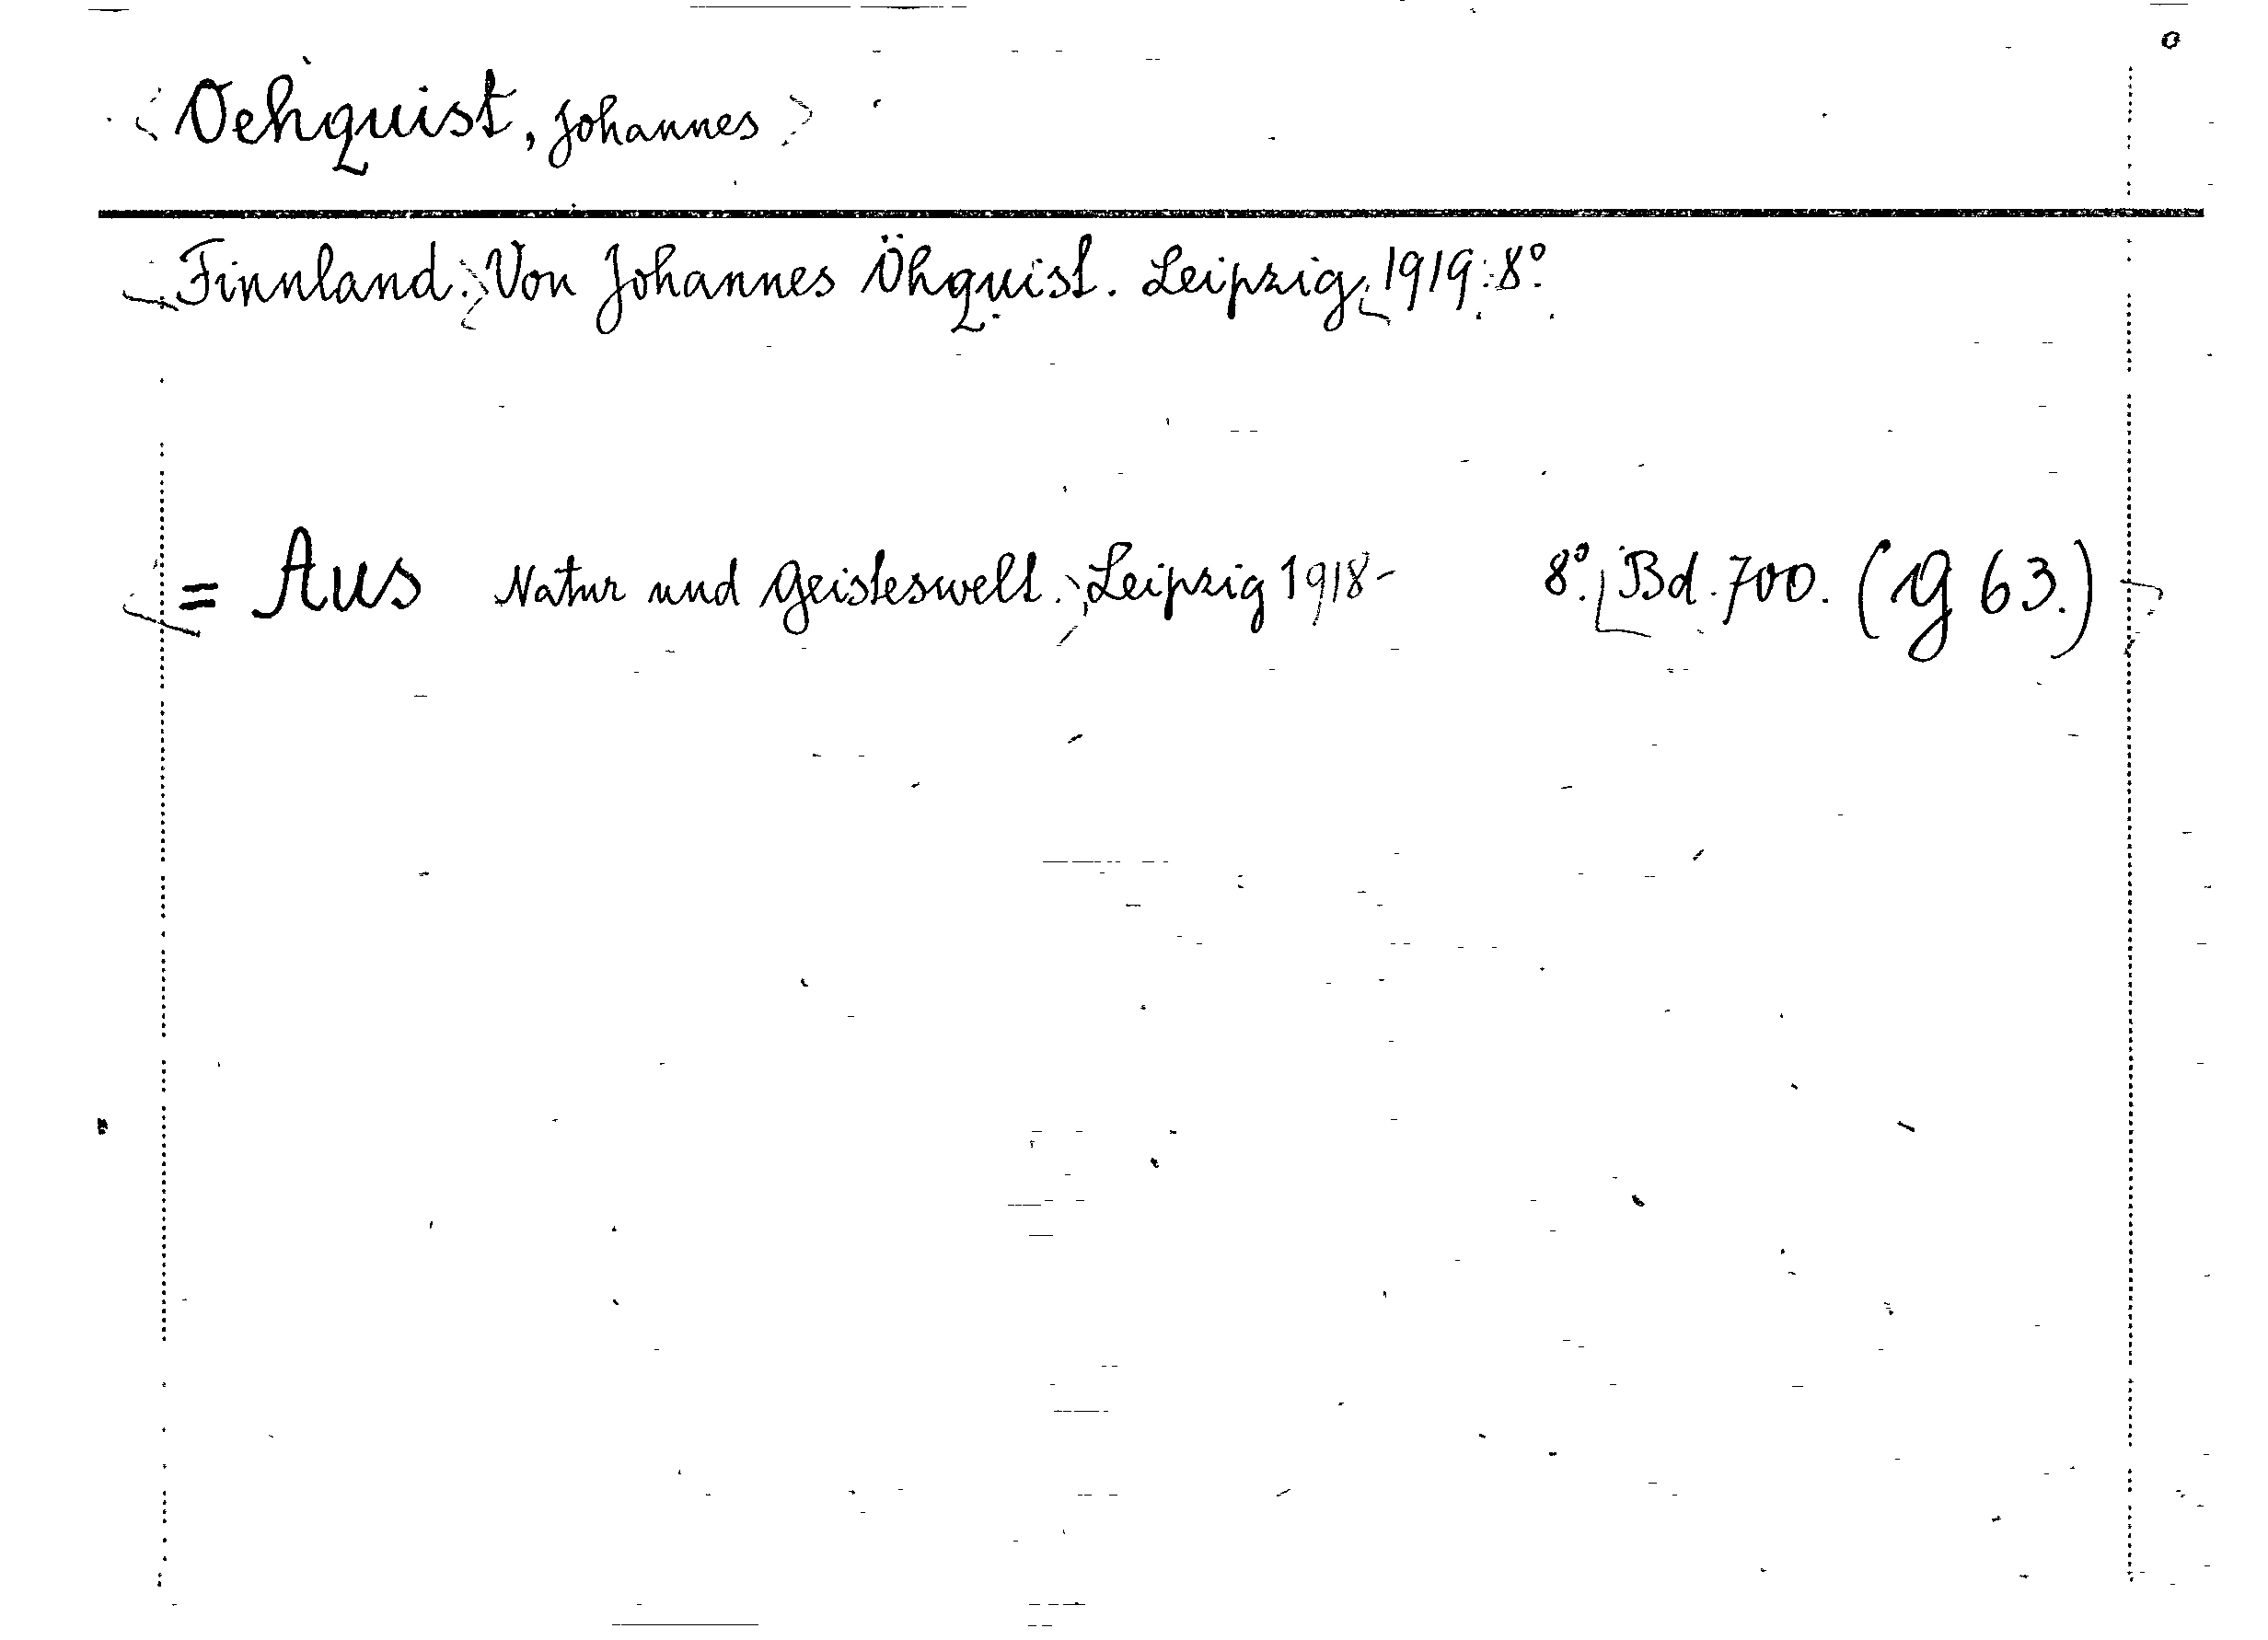 Oehquist, Johannes
Finnland. Von Johannes Öhquist. Leipzig 1919. 8°.
= Aus Natur und Geisteswelt. Leipzig 1918- 8°. Bd. 700. (G 63.)